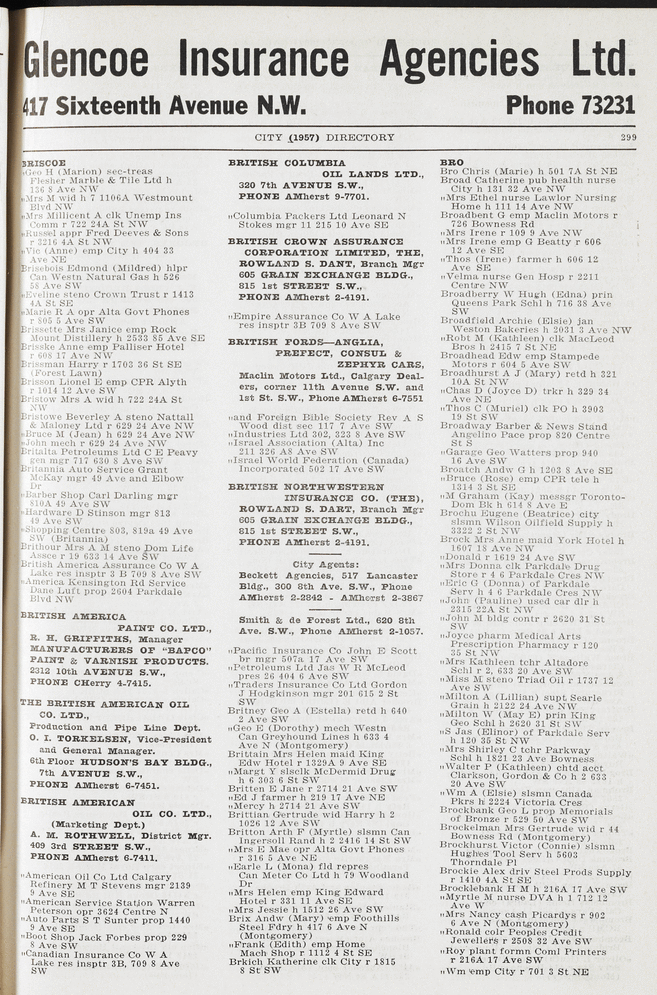 Glencoe Insurance Agencies Ltd.
417 Sixteenth Avenue N.W. Phone 73231
CITY (1957) DIRECTORY 299
BRISCOE
"Geo H (Marion) sec-treas
Flesher Marble & Tile Ltd h
136 8 Ave NW
"Mrs M wid h 7 1106A Westmount
Blvd NW
"Mrs Millicent A clk Unemp Ins
Comm r 722 24A St NW
"Russel appr Fred Deeves & Sons
r 3216 4A St NW
"Vic (Anne) emp City h 404 33
Ave NE
Brisebois Edmond (Mildred) hlpr
Can Westn Natural Gas h 526
58 Ave SW
"Eveline steno Crown Trust r 1413
4A St SE
"Marie R A opr Alta Govt Phones
r 805 5 Ave SW
Brissette Mrs Janice emp Rock
Mount Distillery h 2533 85 Ave SE
Briske Anne emp Palliser Hotel
r 608 17 Ave NW
Brissman Harry r 1703 36 St SE
(Forest Lawn)
Brisson Lionel E emp CPR Alyth
r 1014 12 Ave SW
Bristow Mrs A wid h 722 24A St
NW
Bristowe Beverley A steno Nattall
& Maloney Ltd r 629 24 Ave NW
"Bruce M (Jean) h 629 24 Ave NW
"John mech r 629 24 Ave NW
Britalta Petroleums Ltd C E Peavy
gen mgr 717 630 8 Ave SW
Britannia Auto Service Grant
McKay mgr 49 Ave and Elbow
Dr
"Barber Shop Carl Darling mgr
810A 49 Ave SW
"Hardware D Stinson mgr 813
49 Ave SW
"Shopping Centre 803, 819a 49 Ave
SW (Britannia)
Brithour Mrs A M steno Dom Life
Assce r 19 633 14 Ave SW
British America Assurance Co W A
Lake res insptr 3 B 709 8 Ave SW
"America Kensington Rd Service
Dane Luft prop 2604 Parkdale
Blvd NW
BRITISH AMERICA
PAINT CO. LTD.,
R. H. GRIFFITHS, Manager
MANUFACTURERS OF "BAPCO"
PAINT & VARNISH PRODUCTS.
2312 10th AVENUE S.W.,
PHONE CHerry 4-7415.
THE BRITISH AMERICAN OIL
CO. LTD.,
Production and Pipe Line Dept.
O. I. TORKELSEN, Vice-President
and General Manager.
6th Floor HUDSON'S BAY BLDG.,
7th AVENUE S.W.,
PHONE AMherst 6-7451.
BRITISH AMERICAN
OIL CO. LTD.,
(Marketing Dept.)
A. M. ROTHWELL, District Mgr.
409 3rd STREET S.W.,
PHONE AMherst 6-7411.
"American Oil Co Ltd Calgary
Refinery M T Stevens mgr 2139
9 Ave SE
"American Service Station Warren
Peterson opr 3624 Centre N
"Auto Parts S T Sunter prop 1440
9 Ave SE
"Boot Shop Jack Forbes prop 229
8 Ave SW
"Canadian Insurance Co W A
Lake res insptr 3B, 709 8 Ave
SW
BRITISH COLUMBIA
OIL LANDS LTD.,
320 7th AVENUE S.W.,
PHONE AMherst 9-7701.
"Columbia Packers Ltd Leonard N
Stokes mgr 11 215 10 Ave SE
BRITISH CROWN ASSURANCE
CORPORATION LIMITED, THE,
ROWLAND S. DART, Branch Mgr
605 GRAIN EXCHANGE BLDG.,
815 1st STREET S.W.,
PHONE AMherst 2-4191.
"Empire Assurance Co W A Lake
res insptr 3B 709 8 Ave SW
BRITISH FORDS—ANGLIA,
PREFECT, CONSUL &
ZEPHYR CARS,
Maclin Motors Ltd., Calgary Deal-
ers, corner 11th Avenue S.W. and
1st St. S.W., Phone AMherst 6-7551
"and Foreign Bible Society Rev A S
Wood dist sec 117 7 Ave SW
"Industries Ltd 302, 323 8 Ave SW
"Israel Association (Alta) Inc
211 326 A8 Ave SW
"Israel World Federation (Canada)
Incorporated 502 17 Ave SW
BRITISH NORTHWESTERN
INSURANCE CO. (THE),
ROWLAND S. DART, Branch Mgr
605 GRAIN EXCHANGE BLDG.,
815 1st STREET S.W.,
PHONE AMherst 2-4191.
City Agents:
Beckett Agencies, 517 Lancaster
Bldg., 360 8th Ave. S.W., Phone
AMherst 2-2842 - AMherst 2-3867
Smith & de Forest Ltd., 620 8th
Ave. S.W., Phone AMherst 2-1057.
"Pacific Insurance Co John E Scott
br mgr 507a 17 Ave SW
"Petroleums Ltd Jas W R McLeod
pres 26 404 6 Ave SW
"Traders Insurance Co Ltd Gordon
J Hodgkinson mgr 201 615 2 St
SW
Britney Geo A (Estella) retd h 640
2 Ave SW
"Geo E (Dorothy) mech Westn
Can Greyhound Lines h 633 4
Ave N (Montgomery)
Brittain Mrs Helen maid King
Edw Hotel r 1329A 9 Ave SE
"Margt Y slsclk McDermid Drug
h 6 303 6 St SW
Britten E Jane r 2714 21 Ave SW
"Ed J farmer h 219 17 Ave NE
"Mercy h 2714 21 Ave SW
Brittian Gertrude wid Harry h 2
1026 12 Ave SW
Britton Arth F (Myrtle) slsmn Can
Ingersoll Rand h 2 2416 14 St SW
"Mrs E Mae opr Alta Govt Phones
r 316 5 Ave NE
"Earle L (Mona) fld repres
Can Meter Co Ltd h 79 Woodland
Dr
"Mrs Helen emp King Edward
Hotel r 331 11 Ave SE
"Mrs Jessie h 1512 26 Ave SW
Brix Andw (Mary) emp Foothills
Steel Fdry h 417 6 Ave N
(Montgomery)
"Frank (Edith) emp Home
Mach Shop r 1112 4 St SE
Brkich Katherine clk City r 1815
8 St SW
BRO
Bro Chris (Marie) h 501 7A St NE
Broad Catherine pub health nurse
City h 131 32 Ave NW
"Mrs Ethel nurse Lawlor Nursing
Home h 111 14 Ave NW
Broadbent G emp Maclin Motors r
726 Bowness Rd
"Mrs Irene r 109 9 Ave NW
"Mrs Irene emp G Beatty r 606
12 Ave SE
"Thos (Irene) farmer h 606 12
Ave SE
"Velma nurse Gen Hosp r 2211
Centre NW
Broadberry W Hugh (Edna) prin
Queens Park Schl h 716 38 Ave
SW
Broadfield Archie (Elsie) jan
Weston Bakeries h 2031 3 Ave NW
"Robt M (Kathleen) clk MacLeod
Bros h 2415 7 St NE
Broadhead Edw emp Stampede
Motors r 604 5 Ave SW
Broadhurst A J (Mary) retd h 321
10A St NW
"Chas D (Joyce D) trkr h 329 34
Ave NE
"Thos C (Muriel) clk PO h 3903
19 St SW
Broadway Barber & News Stand
Angelino Pace prop 820 Centre
St S
"Garage Geo Watters prop 940
16 Ave SW
Broatch Andw G h 1203 8 Ave SE
"Bruce (Rose) emp CPR tele h
1314 3 St SE
"M Graham (Kay) messgr Toronto-
Dom Bk h 614 8 Ave E
Brochu Eugene (Beatrice) city
slsmn Wilson Oilfield Supply h
3322 2 St NW
Brock Mrs Anne maid York Hotel h
1607 18 Ave NW
"Donald r 1619 24 Ave SW
"Mrs Donna clk Parkdale Drug
Store r 4 6 Parkdale Cres NW
"Eric G (Donna) of Parkdale
Serv h 4 6 Parkdale Cres NW
"John (Pauline) used car dlr h
2315 22A St NW
"John M bldg contr r 2620 31 St
SW
"Joyce pharm Medical Arts
Prescription Pharmacy r 120
35 St NW
"Mrs Kathleen tchr Altadore
Schl r 2, 633 20 Ave SW
"Miss M steno Triad Oil r 1737 12
Ave SW
"Milton A (Lillian) supt Searle
Grain h 2122 24 Ave NW
"Milton W (May E) prin King
Geo Schl h 2620 31 St SW
"S Jas (Elinor) of Parkdale Serv
h 120 35 St NW
"Mrs Shirley C tchr Parkway
Schl h 1821 23 Ave Bowness
"Walter P (Kathleen) chtd acct
Clarkson, Gordon & Co h 2 633
20 Ave SW
"Wm A (Elsie) slsmn Canada
Pkrs h 2224 Victoria Cres
Brockbank Geo L prop Memorials
of Bronze r 529 50 Ave SW
Brockelman Mrs Gertrude wid r 44
Bowness Rd (Montgomery)
Brockhurst Victor (Connie) slsmn
Hughes Tool Serv h 5603
Thorndale Pl
Brockie Alex driv Steel Prods Supply
r 1410 4A St SE
Brocklebank H M h 216A 17 Ave SW
"Myrtle M nurse DVA h 1 712 12
Ave W
"Mrs Nancy cash Picardys r 902
6 Ave N (Montgomery)
"Ronald colr Peoples Credit
Jewellers r 2508 32 Ave SW
"Roy plant formn Coml Printers
r 216A 17 Ave SW
"Wm emp City r 701 3 St NE